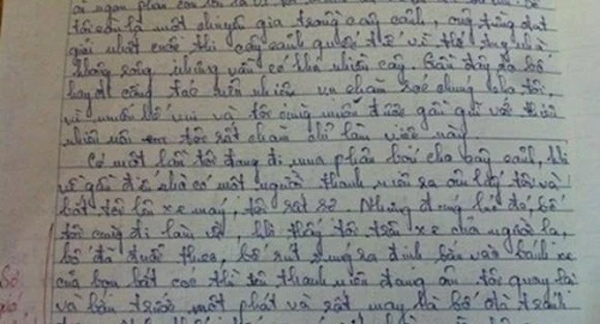 tôi còn là một chuyên gia trong cây cảnh, ông từng đạt
giải nhất cuộc thi cây cảnh quốc tế vì thế tuy nhà
không rộng nhưng vẫn có khá nhiều cây. Gần đây ra bố
hay đi công tác nên nhiệm vụ chăm sóc chúng là tôi,
vì muốn bố vui và tôi cũng muốn được gần gũi với thiên
nhiên nên tôi rất chăm chỉ làm việc này.
Có một lần tôi đang đi mua phân bón cho cây cảnh, khi
về gần đế nhà có một người thanh niên ra ôm lấy tôi và
bắt tôi lên xe máy, tôi rất sợ. Nhưng đúng lúc đó, bố
tôi cũng đi làm về, khi thấy tôi trên xe của người lạ,
bố đã đuổi theo, bố rút súng ra định bắn vào bánh xe
của bọn bắt cóc thì tên thanh niên đang ôm tôi quay lại
và bắn trước một phát và rất may là bố đã tránh